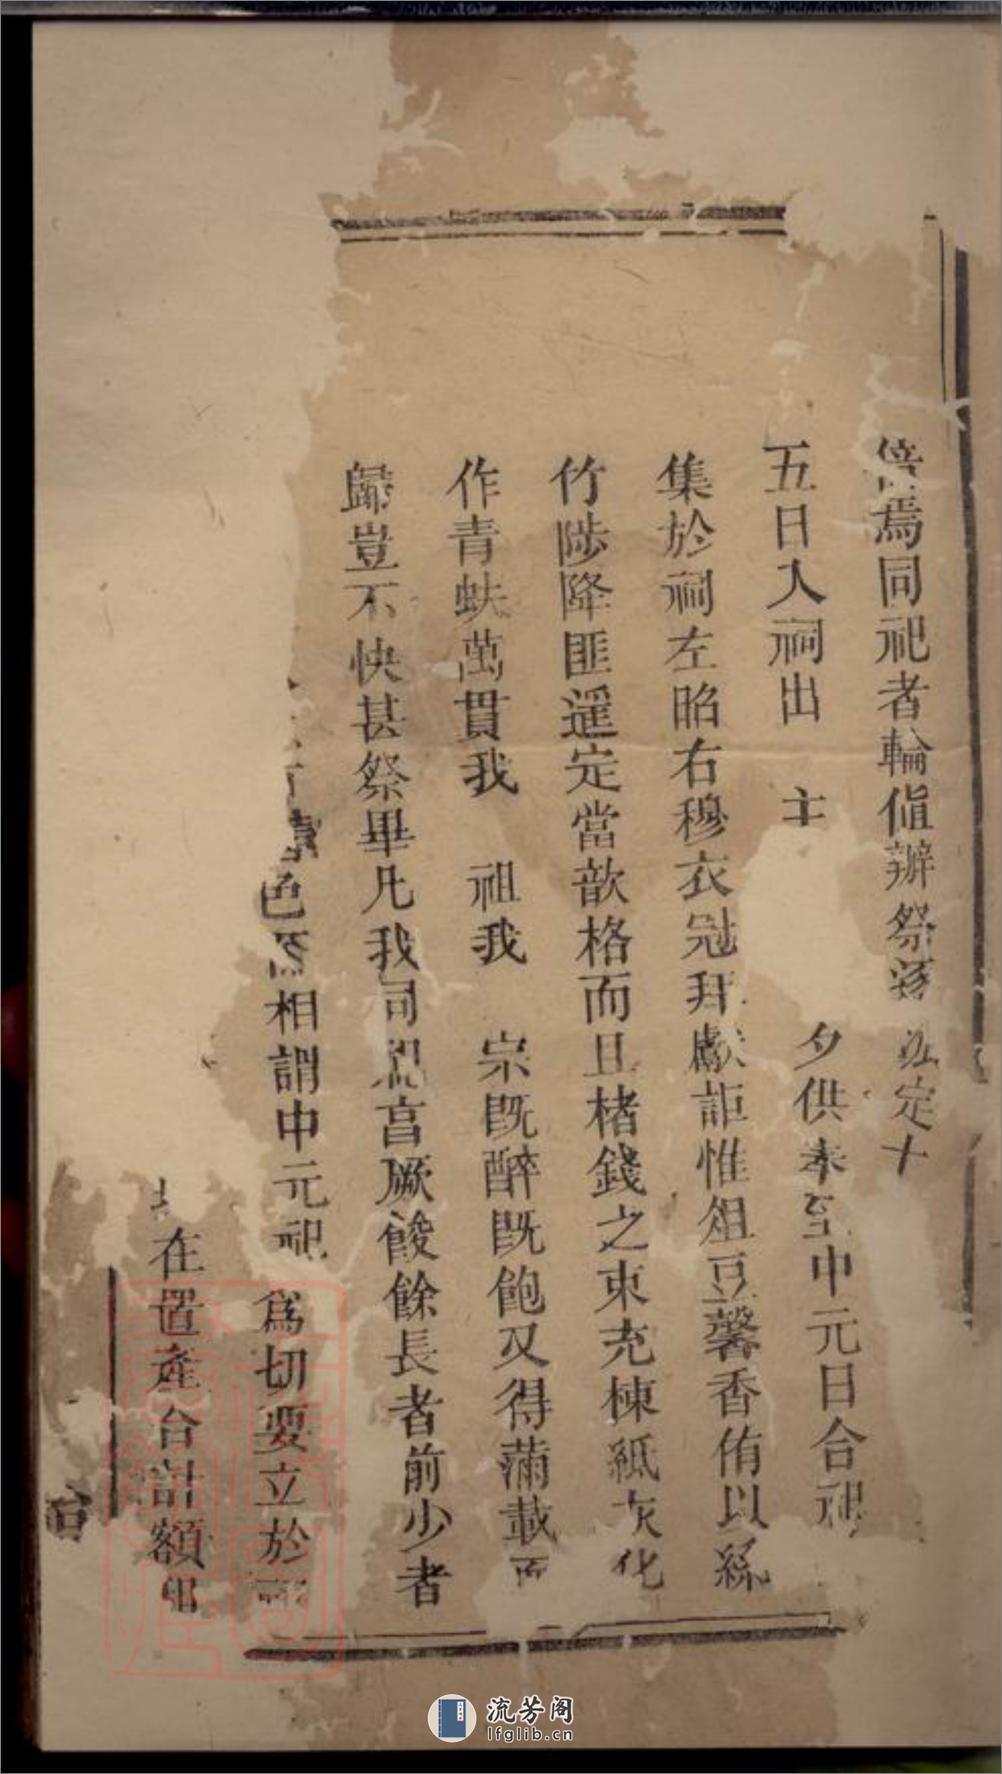 倍焉同祀者輪值辦祭 定十
五日入祠出 主 夕供奉至中元日合祀
集於祠左昭右穆衣冠拜獻詎惟俎豆馨香侑以絲
竹陟降匪遥定當歆格而且楮錢之束充棟紙灰化
作青蚨萬貫我 祖我 宗既醉既飽又得滿載而
歸豈不快甚祭畢凡我同祀 厥餕餘長者前少者
色 相謂中元祀 爲切要立於
在置產合計額
流芳阁
lfglib.cn